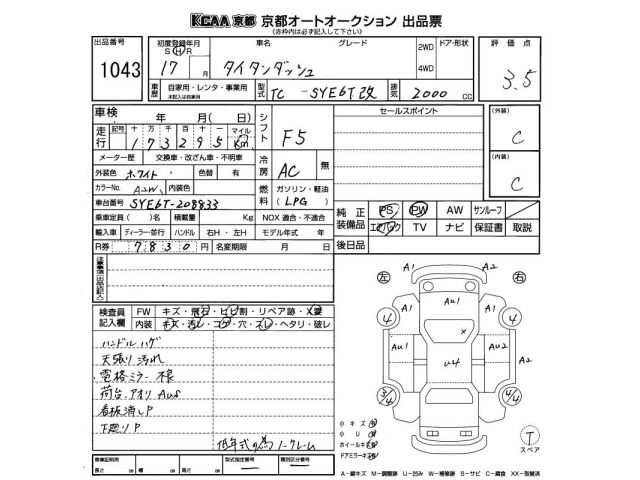 KCAA 京都 京都オートオークション 出品票
(赤枠内は必ず記入して下さい)
出品番号
1043
初度登録年月
S H R
17 月
車名
グレード
タイタンダッシュ
2WD
4WD
ドア・形状
評価点
3.5
車歴
自家用・レンタ・事業用
未記入は自家用
型式
TC-SYE6T改
排気
2000 CC
車検 年 月( 日)
シフト
F5
走行
記号 十 万 千 百 十 一 マイル
1 7 3 2 9 5 Km
メーター歴 交換車・改ざん車・不明車
冷房
AC
無
外装色 ホワイト 色替 有
カラーNo. A2W 内装色
燃料
ガソリン・軽油
(LPG)
車台番号 SYE6T-208833
乗車定員 ( )名 積載量 Kg NOX 適合・不適合
輸入車 ディーラー・並行 ハンドル 右H・左H モデル年式 年
R券 7830 円 名変期限 月 日
セールスポイント
(外装)
C
(内装)
C
純正装備品
PS PW AW サンルーフ
エアバッグ TV ナビ 保証書 取説
後日品
注意事項(出品店記入)
検査員記入欄
FW キズ・飛石・ヒビ割・リペア跡・X要
内装 キズ・汚レ・コゲ・穴・スレ・ヘタリ・破レ
ハンドルハゲ
天張り汚れ
電格ミラー不良
荷台,アオリ AUS
看板消しP
下廻りP
低年式の為ノークレーム
車庫証明用
長さ cm 幅 cm 高さ cm
型式指定番号
類別区分番号
左
右
A1
A2
A1
Au1
A1
4
4
Au1
Au2
A2
X
u4
3/4
4/4
小キズ
小U
ホイールキズ
ドアミラーキズ
T
スペア
A-線キズ M-調整跡 U-凹み W-補修跡 S-サビ C-腐食 XX-取替済